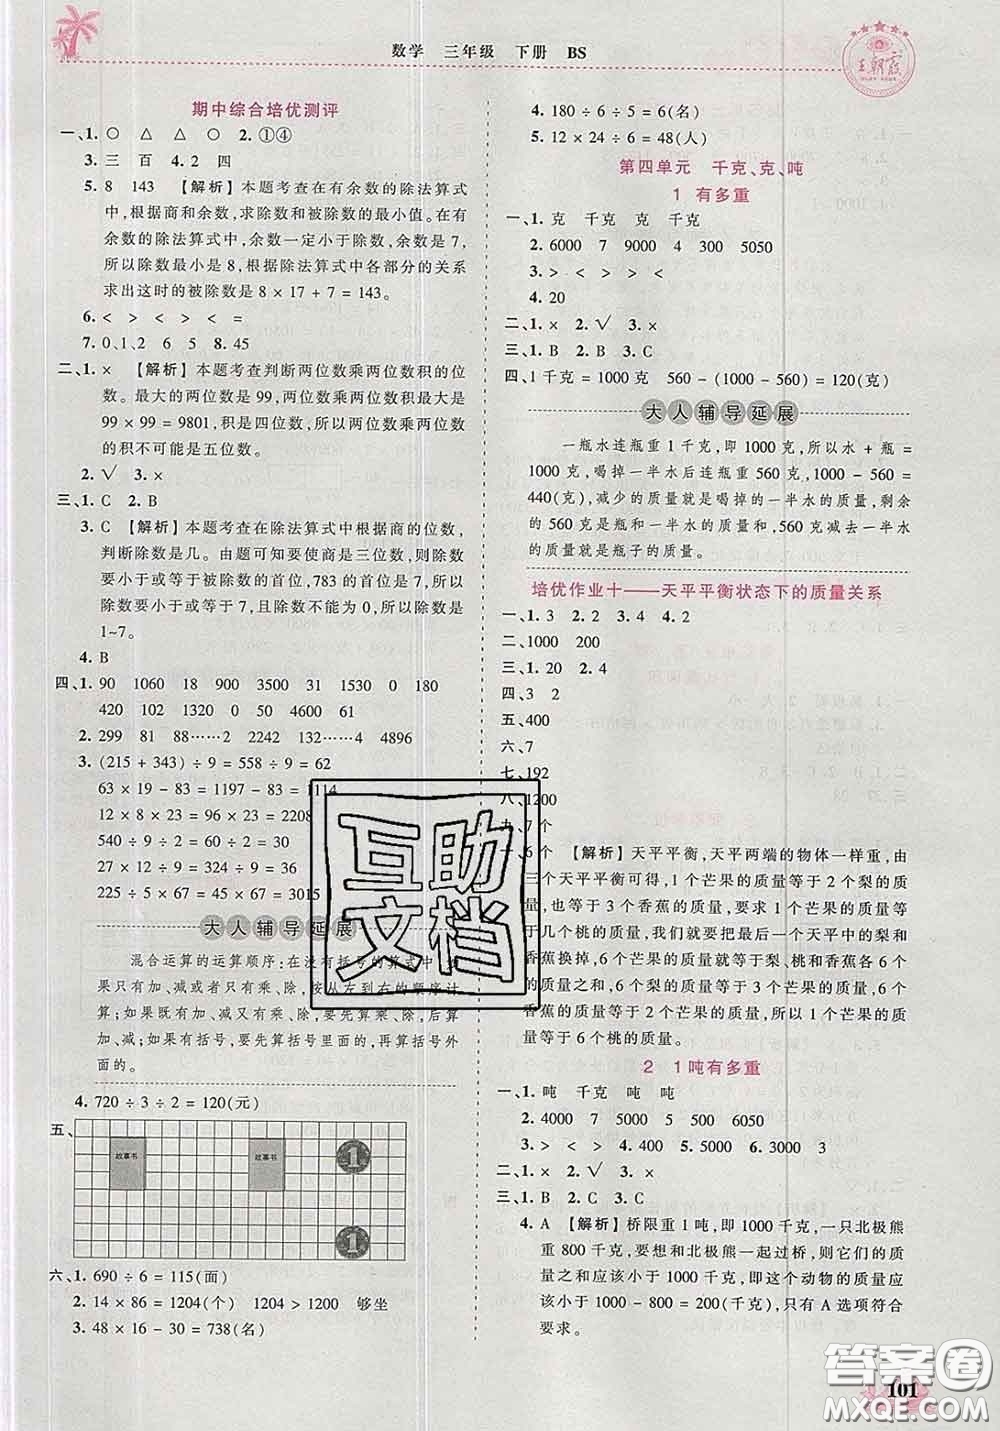 数学 三年级 下册 BS
王朝霞
期中综合培优测评
一、1. ○ △ △ ○ 2. ①④
3. 三 百 4. 2 四
5. 8 143 【解析】本题考查在有余数的除法算式
中,根据商和余数,求除数和被除数的最小值。在有
余数的除法算式中,余数一定小于除数,余数是 7,
所以除数最小是 8,根据除法算式中各部分的关系
求出这时的被除数是 8 × 17 + 7 = 143。
6. < > < < =
7. 0、1、2 6 5 8. 45
二、1. × 【解析】本题考查判断两位数乘两位数积的位
数。最大的两位数是 99,两位数乘两位数积最大是
99 × 99 = 9801,积是四位数,所以两位数乘两位数
的积不可能是五位数。
2. √ 3. ×
三、1. C 2. B
3. C 【解析】本题考查在除法算式中根据商的位数,
判断除数是几。由题可知要使商是三位数,则除数
要小于或等于被除数的首位,783 的首位是 7,所以
除数要小于或等于 7,且除数不能为 0,所以除数是
1~7。
4. B
四、1. 90 1060 18 900 3500 31 1530 0 180
420 102 1320 0 50 4800 61 650
2. 299 81 88……2 120……4 132……4 4896
3. (215 + 343) ÷ 9 = 558 ÷ 9 = 62
63 × 19 - 83 = 1197 - 83 = 1114
12 × 8 × 23 = 96 × 23 = 2208
540 ÷ 9 ÷ 2 = 60 ÷ 2 = 30
27 × 12 ÷ 9 = 324 ÷ 9 = 36
225 ÷ 5 × 67 = 45 × 67 = 3015
大人辅导延展
混合运算的运算顺序:在没有括号的算式中,如
果只有加、减或者只有乘、除,按从左到右的顺序计
算;如果既有加、减又有乘、除,要先算乘、除,后算
加、减;如果有括号,要先算括号里面的,再算括号外
面的。
4. 720 ÷ 3 ÷ 2 = 120(元)
五、
故事书 故事书 1
1
六、1. 690 ÷ 6 = 115(面)
2. 14 × 86 = 1204(个) 1204 > 1200 够坐
3. 48 × 16 - 30 = 738(名)
4. 180 ÷ 6 ÷ 5 = 6(名)
5. 12 × 24 ÷ 6 = 48(人)
第四单元 千克、克、吨
1 有多重
一、1. 克 千克 克 千克
2. 6000 7 9000 4 300 5050
3. > < > < <
4. 20
二、1. × 2. √ 3. ×
三、1. B 2. C 3. B
四、1 千克 = 1000 克 560 - (1000 - 560) = 120(克)
大人辅导延展
一瓶水连瓶重 1 千克,即 1000 克,所以水 + 瓶 =
1000 克,喝掉一半水后连瓶重 560 克,1000 - 560 =
440(克),减少的质量就是喝掉的一半水的质量,剩余
的 560 克是瓶和一半水的质量,560 克减去一半水
的质量就是瓶子的质量。
培优作业十——天平平衡状态下的质量关系
一、1. 3 2. 2 3. 4 4. 2
二、1000 200
三、1. 20 2. 4
四、3 2
五、400
六、7
七、192
八、1200
九、7 个
十、6 个 【解析】天平平衡,天平两端的物体一样重,由
三个天平平衡可得,1 个芒果的质量等于 2 个梨的质
量,也等于 3 个香蕉的质量,要求出 1 个芒果的质量等
于几个桃的质量,可以把最后一个天平中的梨和
香蕉换掉,6 个桃的质量等于梨、桃和香蕉各 2 个
的质量之和,6 个桃的质量等于 1 个芒果的质量、
2 个桃的质量之和,6 个桃的质量等于 2 个芒果的质量,所以 1 个芒果的
质量等于 6 个桃的质量。
2 1 吨有多重
一、1. 吨 千克 吨 吨
2. 4000 7 5000 5 5000 6050
3. > < > < 4. 400 5. 5000 6. 3000 3
二、1. × 2. √ 3. ×
三、1. B 2. C 3. B
4. A 【解析】桥限重 1 吨,即 1000 千克,一只北极熊
重 800 千克,要想和北极熊一起过桥,则它们的质
量之和应该小于 1000 千克,即这个动物的质量应
该小于 1000 - 800 = 200(千克),只有 A 选项符合
要求。
互助文档
101
答案圈
MXQE.COM